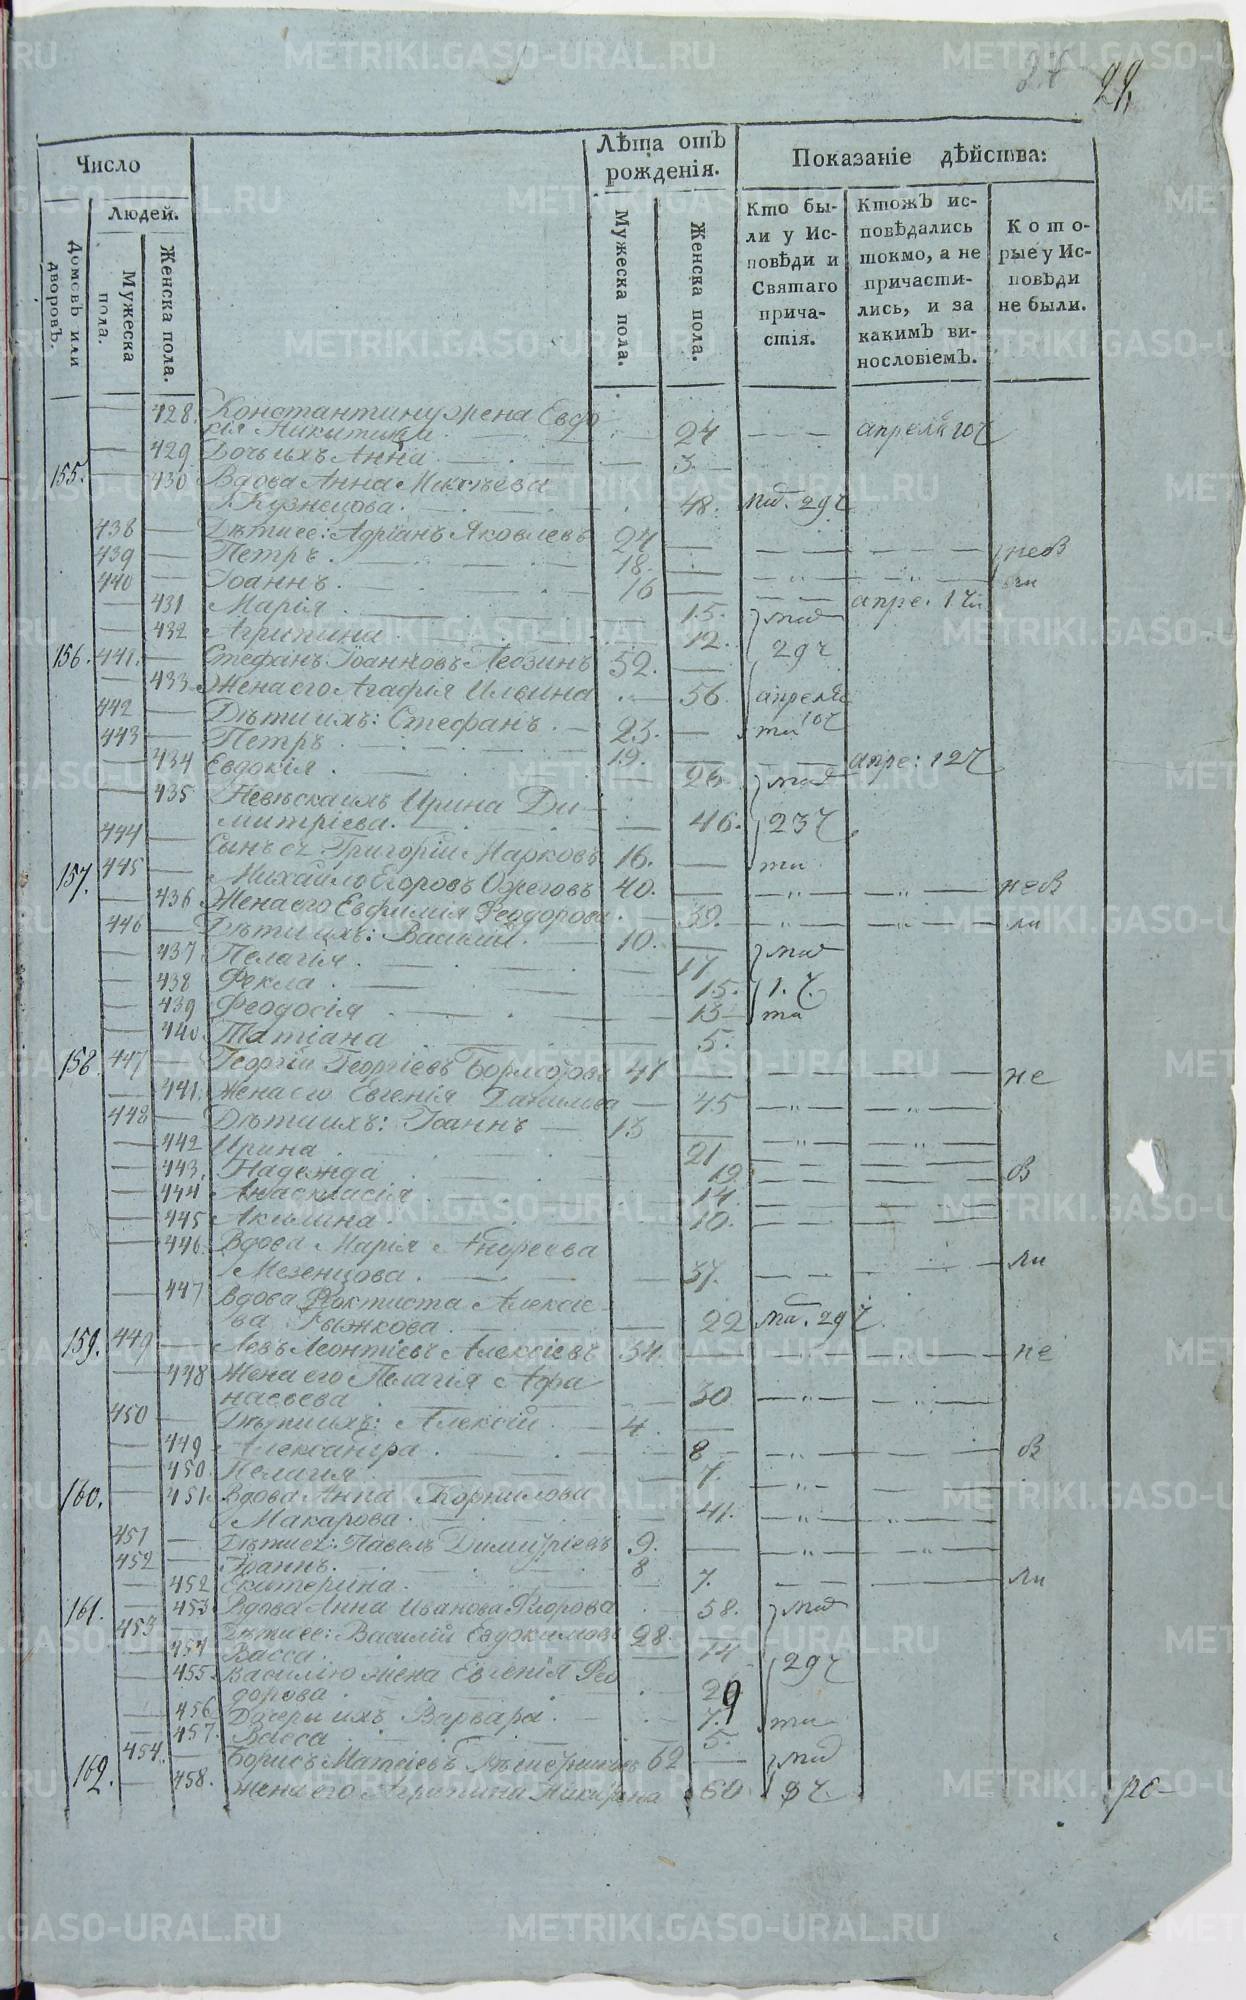 29.
Число
Людей.
Домовъ или дворовъ.
Мужеска пола.
Женска пола.
Лѣта отъ рожденія.
Мужеска пола.
Женска пола.
Показаніе дѣйства:
Кто бы-
ли у Ис-
повѣди и
Святаго
прича-
стія.
Ктожъ ис-
повѣдались
токмо, а не
причасти-
лись, и за
какимъ ви-
нословіемъ.
Кото-
рые у Ис-
повѣди
не были.
428. Константину жена Евдо
кія Никитина 24 апреля 10 ч
429 Дочь ихъ Анна 3
155. 430 Вдова Анна
Кузнецова 48. 29 ч
438 Дѣти ее: Адріанъ Яковлевъ 24
439 Петръ 18.
440 Іоаннъ 16
431 Марія 15.
432 Агрипина 12. 29 ч
156. 441. Стефанъ Іоанновъ 52.
433 Жена его Агафія Ильина 56 апреля
442 Дѣти ихъ: Стефанъ 23. 10 ч
443 Петръ 19. апре: 12 ч
434 Евдокія 26
435 Невѣска ихъ Ирина Ди-
митріева 46. 23 ч
444 Сынъ ея Григорій Марковъ 16.
157. 445 Михайло Егоровъ Ожеговъ 40.
436 Жена его Евфимія Феодорова 39.
446 Дѣти ихъ: Василій 10.
437 Пелагія 17
438 Фекла 15. 1. ч.
439 Феодосія 13
440 Татіана 5.
158. 447 Георгій Георгіевъ 47 не
441. Жена его Евгенія Данилова 45
448 Дѣти ихъ: Іоаннъ 13
442 Ирина 21
443. Надежда 19. в
444 Анастасія 14
445 Акилина 10.
446. Вдова Марія Андреева
Мезенцова 37. ли
447 Вдова Фоктиста Алексіе-
ва Рыжкова 22 29 ч
159. 449 Левъ Леонтіевъ Алексіевъ 34 не
448 Жена его Пелагія Афа
насьева 30
450 Дѣти ихъ: Алексій 4
449 Александра 8 в
450. Пелагія 7.
160. 451. Вдова Анна Корнилова
Макарова 41.
451 Дѣти ее: Павелъ Димитріевъ 9.
452 Іоаннъ 8
452 Екатерина 7. ли
161. 453. Вдова Анна Иванова Флорова 58.
453 Дѣти ее: Василій Евдокимовъ 28.
454 Васса 14 29 ч
455. Василію жена Евгенія Фео
дорова 29
456 Дочери ихъ Варвара 7.
457. Васса 5.
162. 454. Борисъ Матвіевъ 62
458. Жена его Агрипина 60 9 ч.